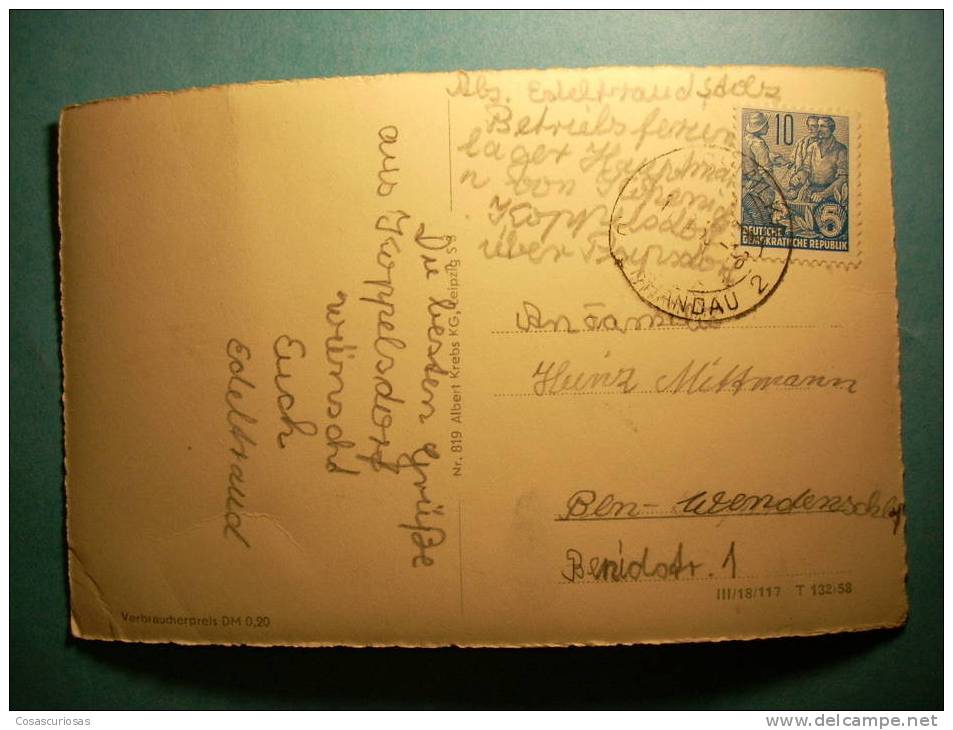 Abs. Edeltraud
Betriebsferien
lager Hauptman
n von Köpenick
Koppelsdorf
über
10
5
DEUTSCHE
DEMOKRATISCHE REPUBLIK
ANDAU 2
An Familie
Heinz Mittmann
Bln- Wendenschl
1
III/18/117 T 132/58
Die besten Grüße
aus Koppelsdorf
wünscht
Euch
Edeltraud
Nr. 819 Albert Krebs KG, Leipzig S 3
Verbraucherpreis DM 0,20
Cosascuriosas
www.delcampe.net